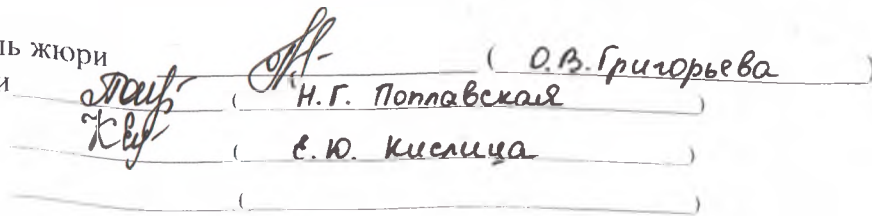 ль жюри ( О.В. Григорьева )
и ( Н.Г. Поплавская )
( Е.Ю. Кислица )
( )